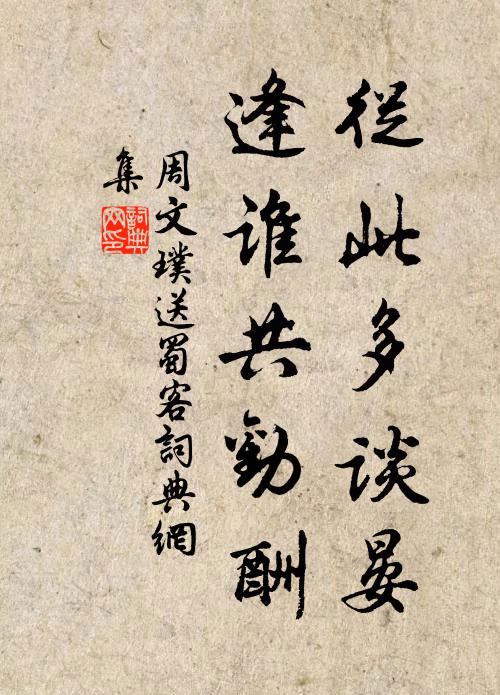 從此多談晏
逢誰共勸酬
周文璞送蜀客詞典網
集
詞典網印